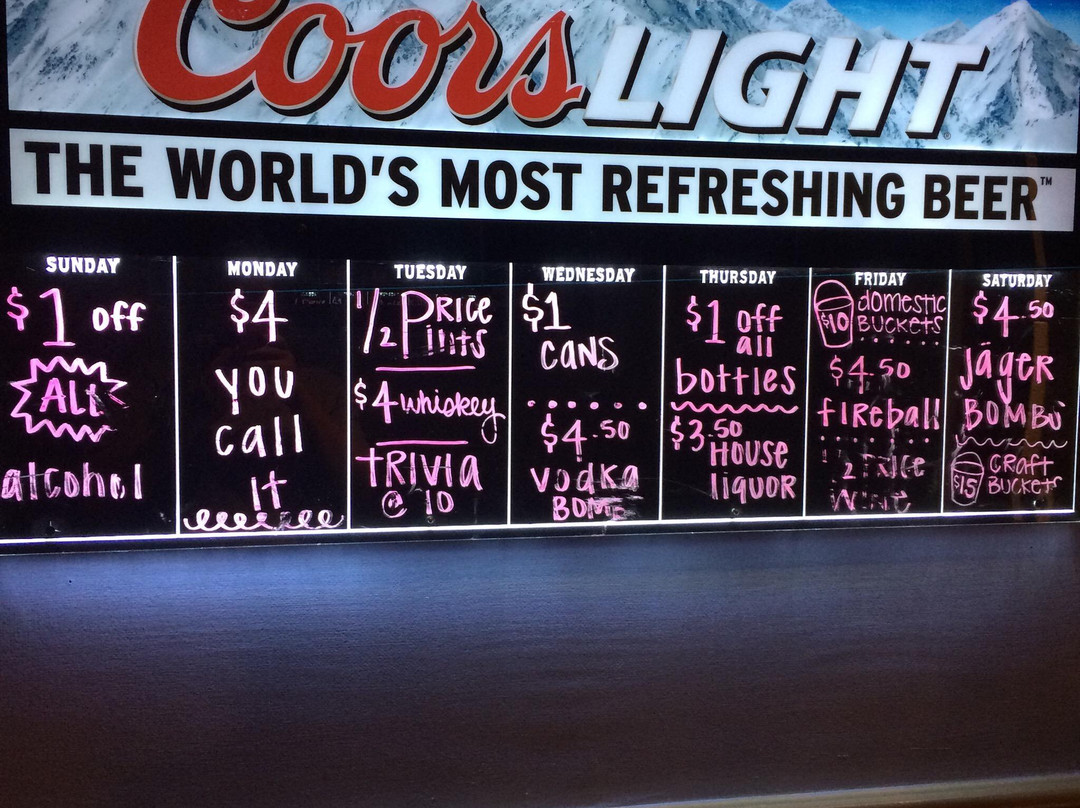 Coors LIGHT
THE WORLD'S MOST REFRESHING BEER™
SUNDAY
$1 off
ALL
alcohol
MONDAY
$4
you
call
it
TUESDAY
1/2 PRICE
Pints
$4 whiskey
TRIVIA
@ 10
WEDNESDAY
$1
cans
$4.50
vodka
BOMB
THURSDAY
$1 off
all
bottles
$3.50
HOUSE
liquor
FRIDAY
$10 domestic
BUCKETS
$4.50
fIREball
WINE
SATURDAY
$4.50
JägER
BOMBS
$15 CRAFT
BUCKETS